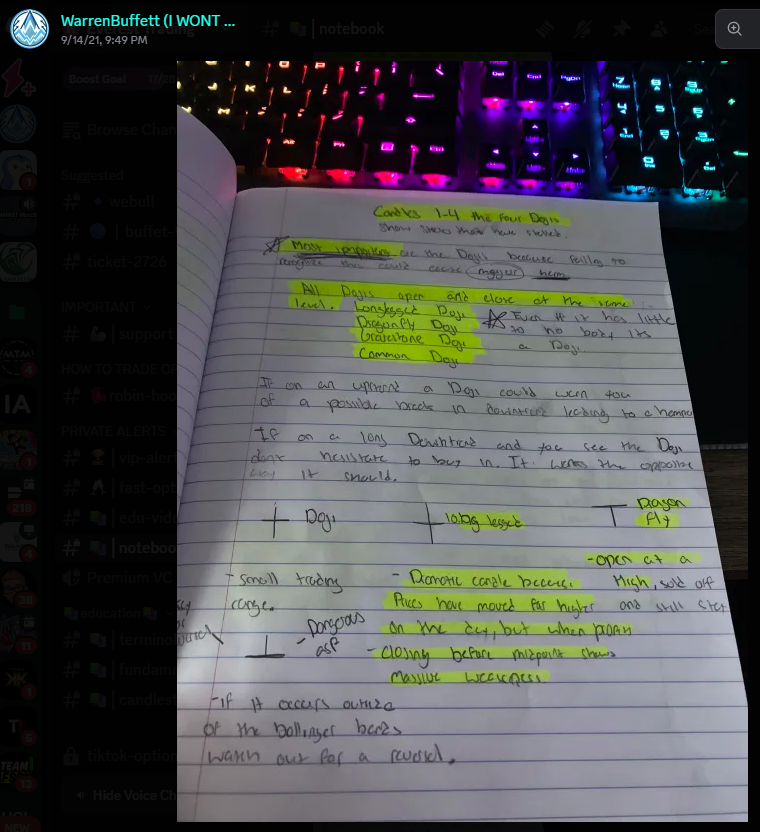 WarrenBuffett (I WONT ...
9/14/21, 9:49 PM
notebook
Boost Goal
Browse Chan
Suggested
webull
buffet-
ticket-2726
IMPORTANT
support
HOW TO TRADE O
robin-hoo
PRIVATE ALERTS
vip-alert
fast-opt
edu-vid
noteboo
Premium VC
education
termino
fundam
candles
tiktok-option
Hide Voice Ch
Candles 1-4 the four Dojis
Show stocks that have stalled.
Most important are the Dojis because failing to
recognize them could cause major harm
All Dojis open and close at the same
level. Longlegged Doji
Dragonfly Doji
Gravestone Doji
Common Doji
Even if it has little
to no body its
a Doji
If on an uptrend a Doji could warn you
of a possible break in downtrend leading to a
If on a long Downtrend and you see the Doji
dont hesitate to buy in. It works the opposite
way it should.
Doji
long legged
Dragon
fly
- small trading
range.
- Dramatic candle because
Prices have moved far higher
on the day, but when
- closing before midpoint shows
Massive weakness
- open at a
High, sold off
and still
- Dangerous
asf
- If it occurs outside
of the bollinger bands
watch out for a reversal.